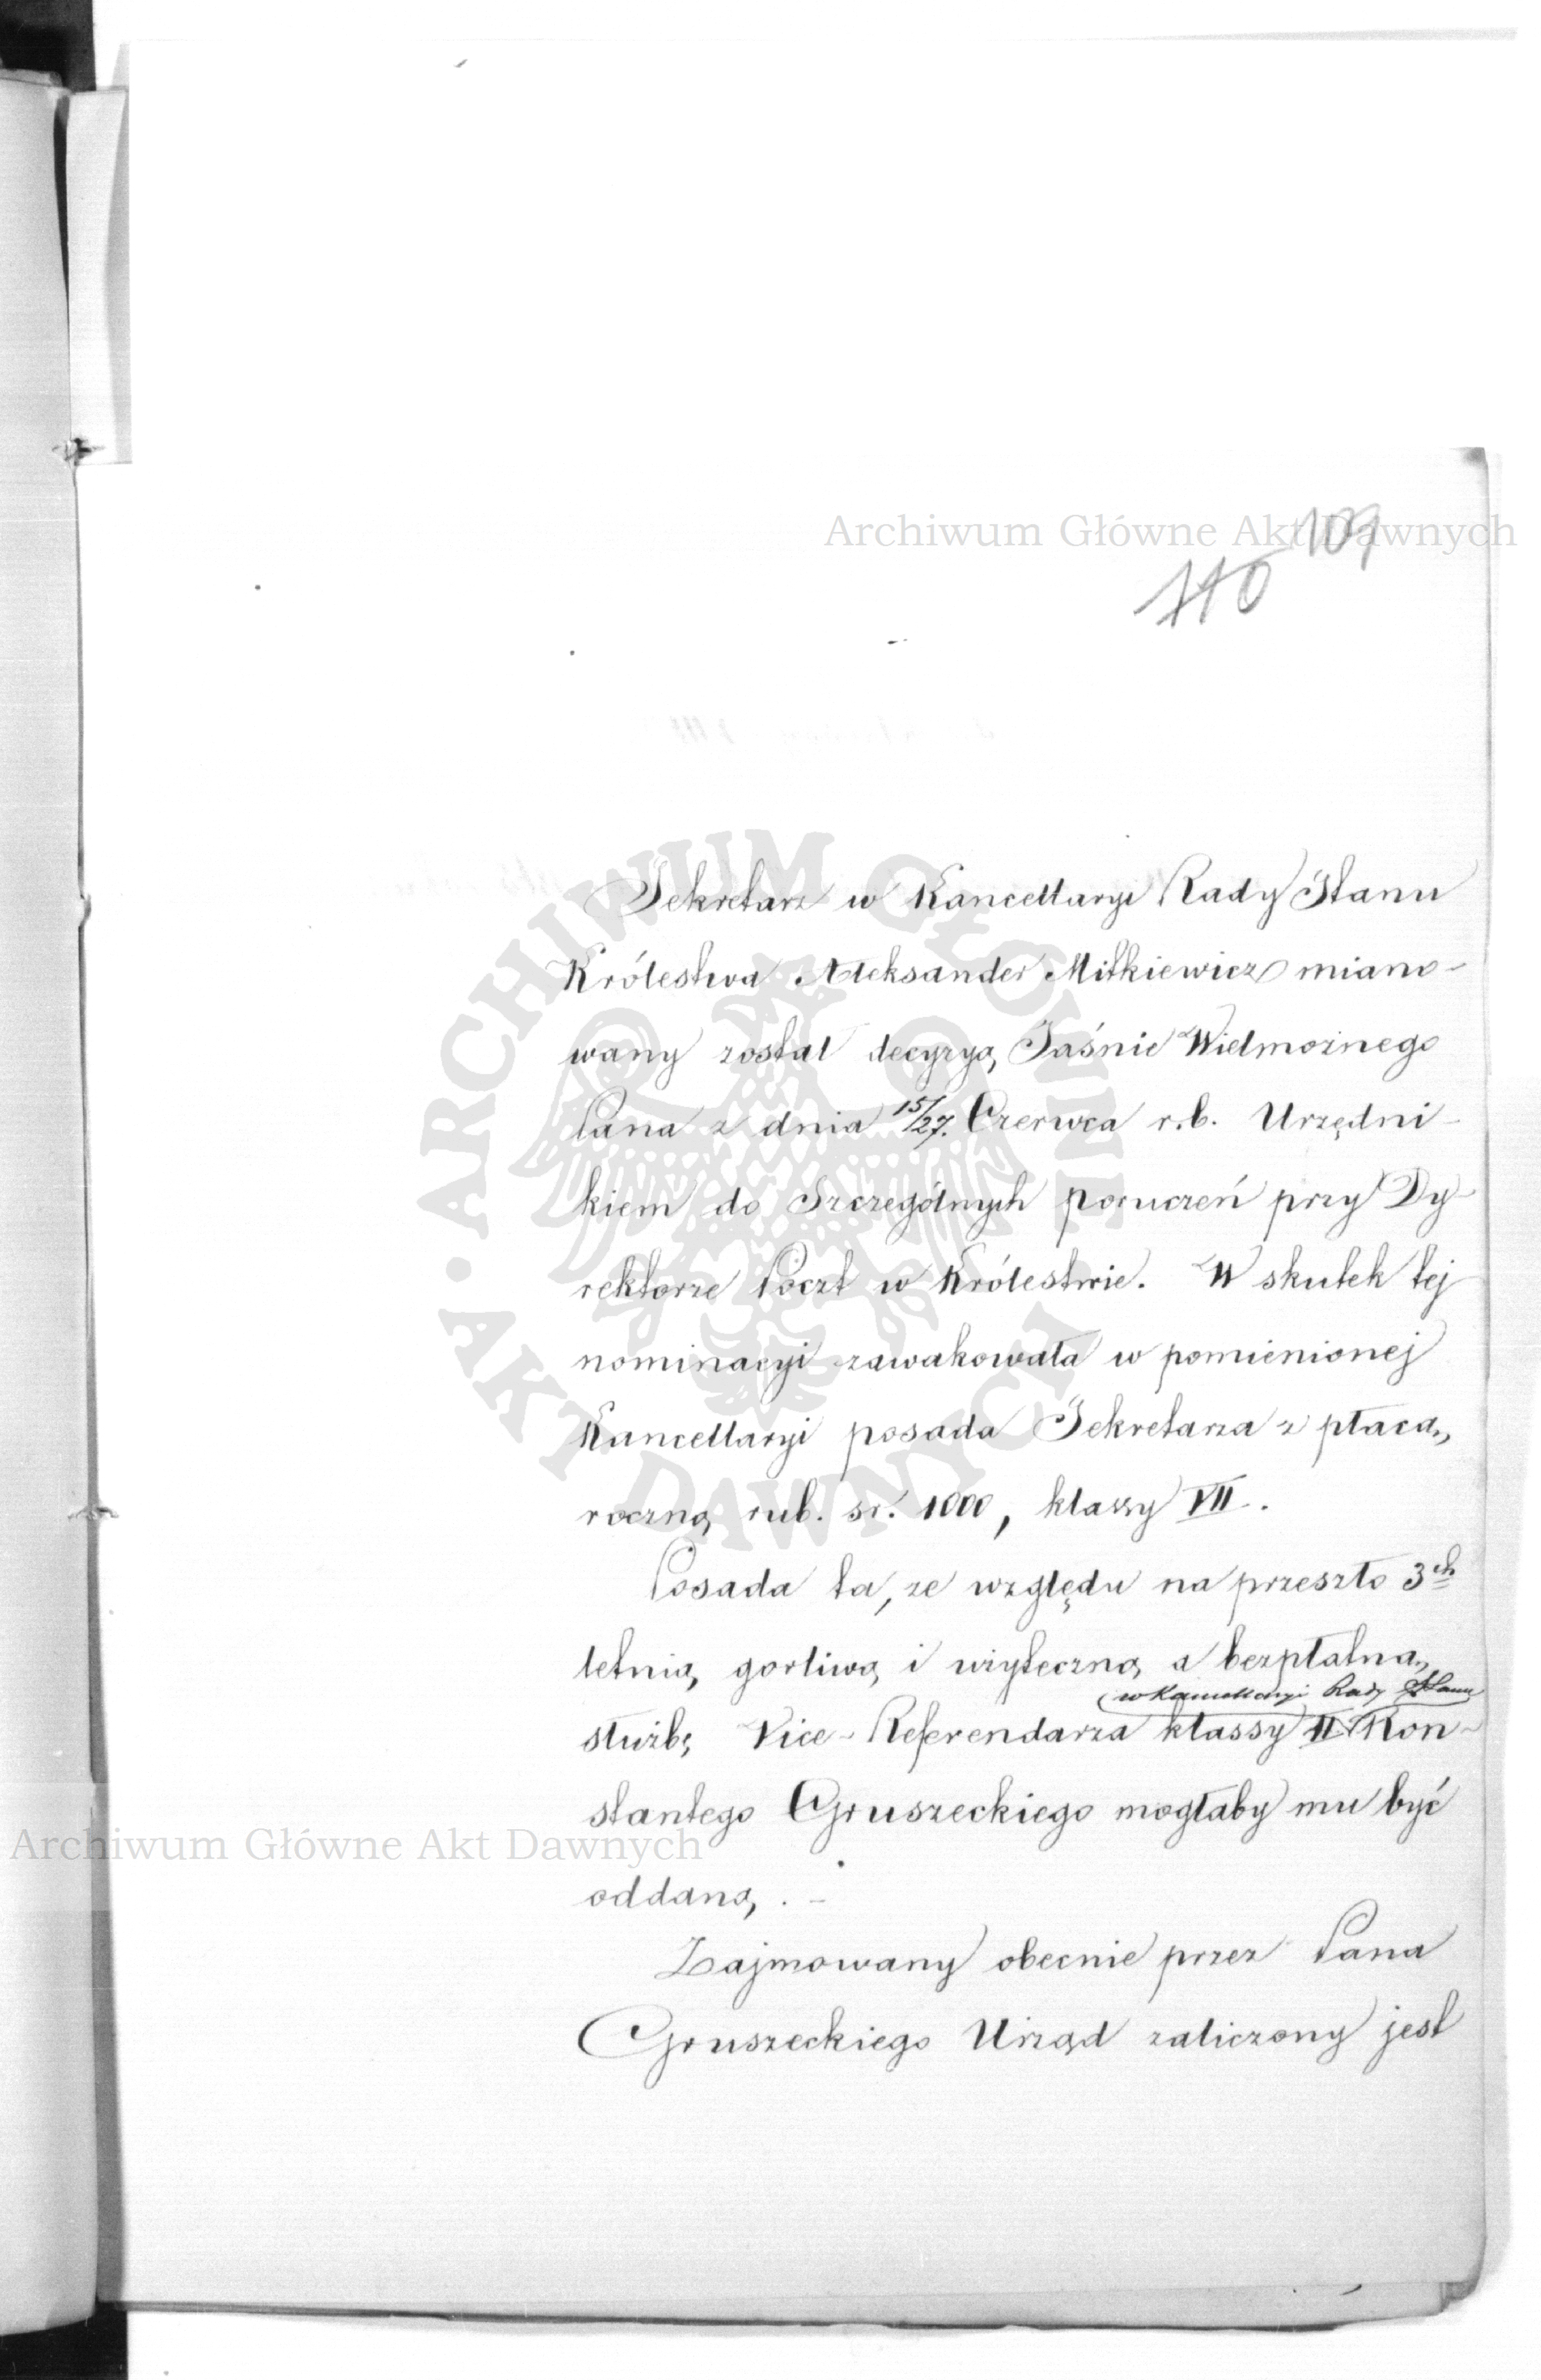 Archiwum Główne Akt Dawnych
109
110
ARCHIWUM GŁÓWNE AKT DAWNYCH
Sekretarz w Kancellaryi Rady Stanu
Królestwa Aleksander Mitkiewicz miano-
wany został decyzyą Jaśnie Wielmożnego
Pana z dnia 15/27. Czerwca r.b. Urzędni-
kiem do Szczególnych poruczeń przy Dy-
rektorze Poczt w Królestwie. W skutek tej
nominacyi zawakowała w pomienionej
Kancellaryi posada Sekretarza z płacą
roczną rub. sr. 1000, klassy VII.
Posada ta, ze względu na przeszło 3ch
letnią, gorliwą i użyteczną a bezpłatną
w Kancellaryi Rady Stanu
służbę Vice-Referendarza klassy II Kon-
stantego Gruszeckiego mogłaby mu być
oddaną. -
Archiwum Główne Akt Dawnych
Zajmowany obecnie przez Pana
Gruszeckiego Urząd zaliczony jest